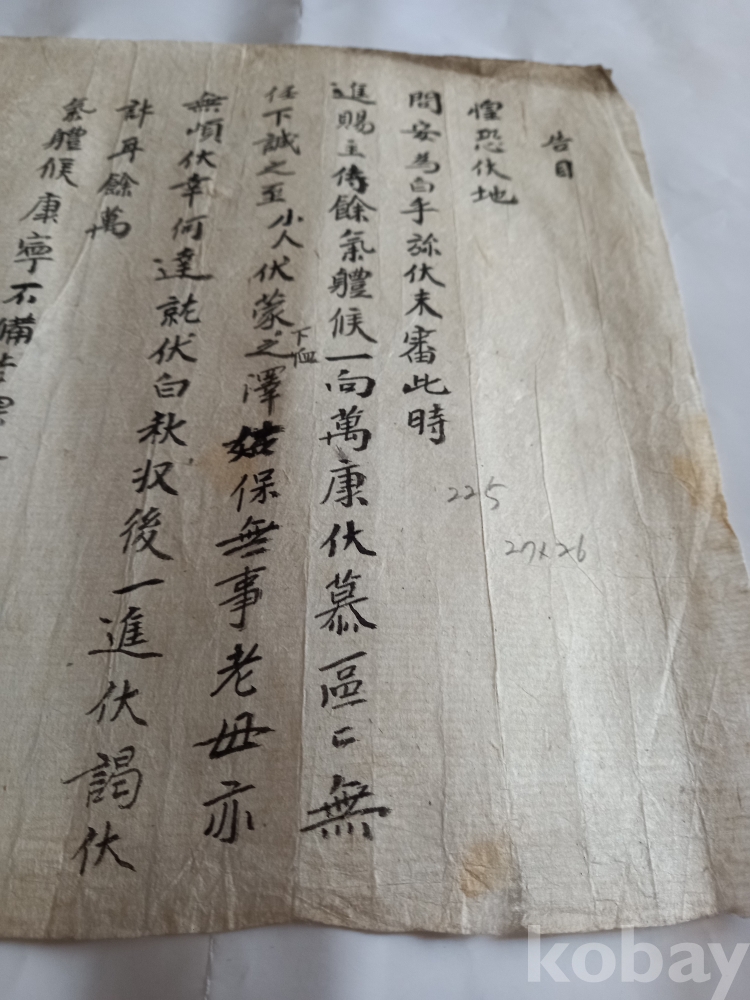 告目
惶恐伏地
問安爲白乎弥伏未審此時
進賜主侍餘氣體候一向萬康伏慕區〻無
任下誠之至小人伏蒙下恤之澤姑保無事老母亦
無頉伏幸何達就伏白秋収後一進伏謁伏
計耳餘萬
氣體候康寧不備
225
27x26
kobay